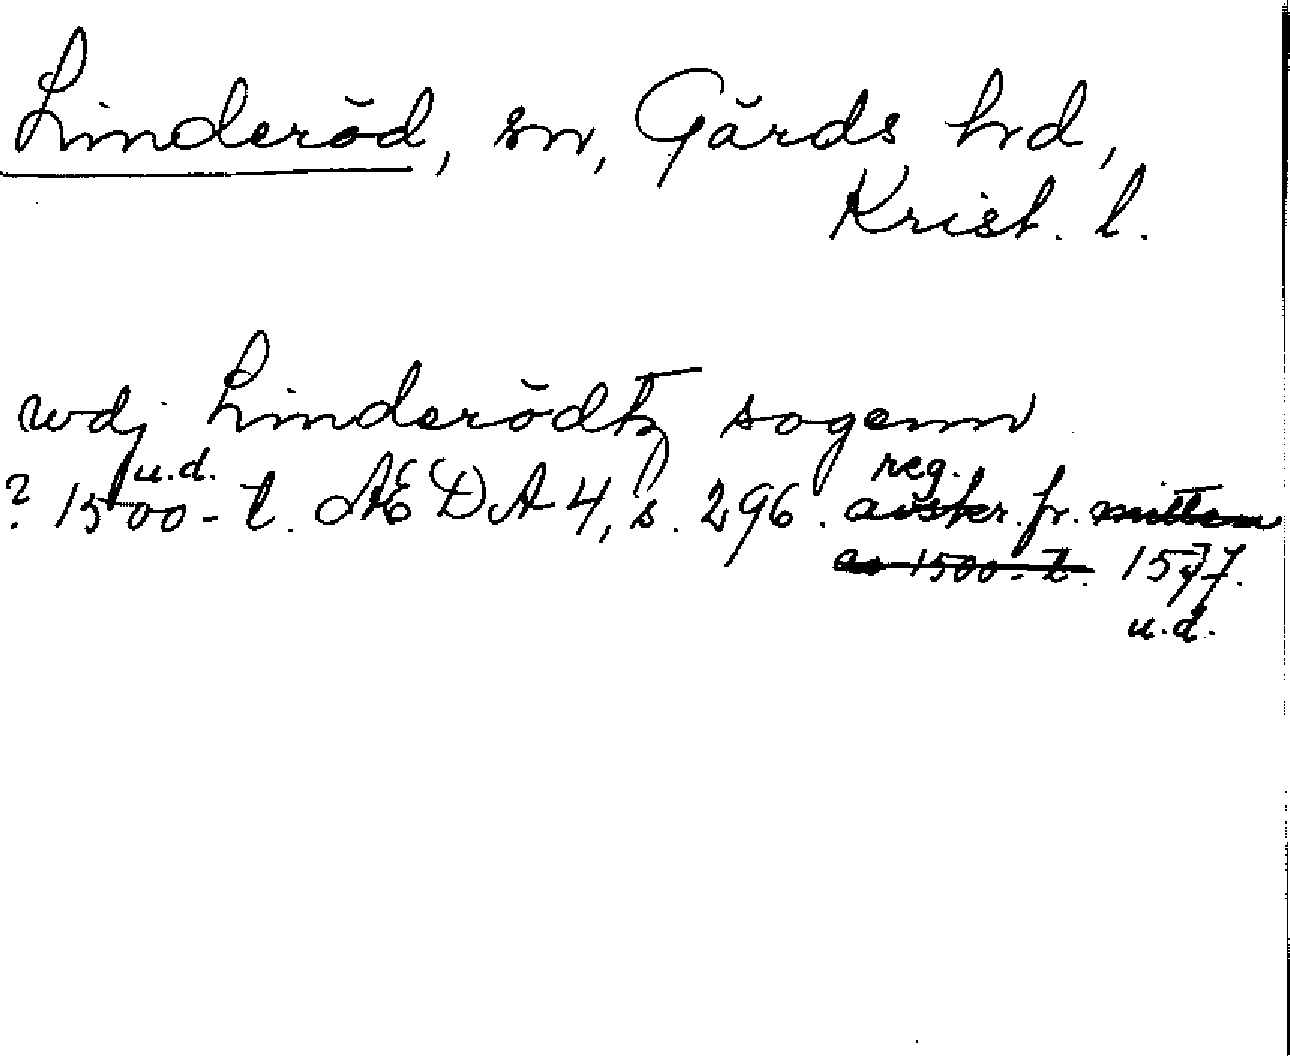 Linderöd, sn, Gärds hrd,
Krist. l.
wdj Linderödtz sogenn
u.d. reg.
? 1500-t. ÆDA 4, s. 296. avskr. fr. mitten
av 1500-t. 1577.
u.d.